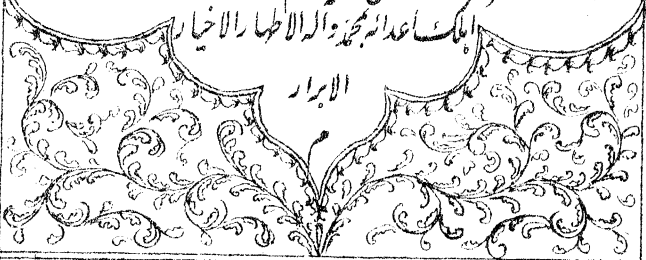 اهلك أعدائه بمحمد وآله الاطهار الاخيار
الابرار